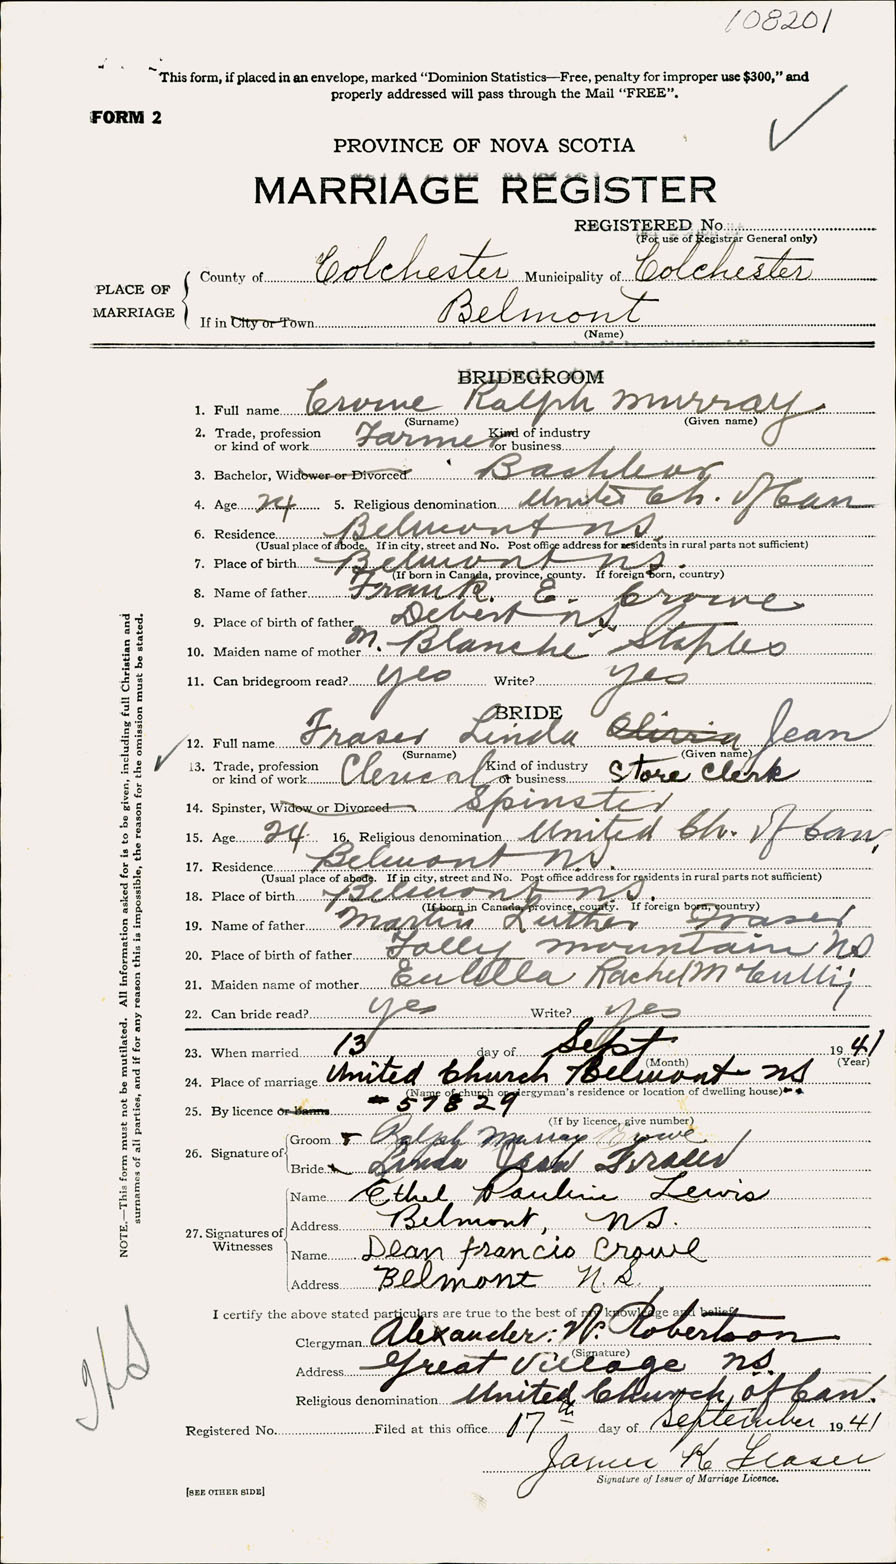 108201
This form, if placed in an envelope, marked "Dominion Statistics—Free, penalty for improper use $300," and
properly addressed will pass through the Mail "FREE".
FORM 2
PROVINCE OF NOVA SCOTIA
MARRIAGE REGISTER
REGISTERED No.
(For use of Registrar General only)
PLACE OF MARRIAGE
County of Colchester Municipality of Colchester
If in City or Town Belmont
(Name)
BRIDEGROOM
1. Full name Crowe Ralph Murray
(Surname) (Given name)
2. Trade, profession or kind of work Farmer Kind of industry or business
3. Bachelor, Widower or Divorced Bachleor
4. Age 24 5. Religious denomination United Ch. of Can
6. Residence Belmont NS.
(Usual place of abode. If in city, street and No. Post office address for residents in rural parts not sufficient)
7. Place of birth Belmont NS.
(If born in Canada, province, county. If foreign born, country)
8. Name of father Frank E. Crowe
9. Place of birth of father Debert NS
10. Maiden name of mother M. Blanche Staples
11. Can bridegroom read? yes Write? yes
BRIDE
12. Full name Fraser Linda Olivia Jean
(Surname) (Given name)
13. Trade, profession or kind of work Clerical Kind of industry or business Store Clerk
14. Spinster, Widow or Divorced Spinster
15. Age 24 16. Religious denomination United Ch. of Can,
17. Residence Belmont NS.
(Usual place of abode. If in city, street and No. Post office address for residents in rural parts not sufficient)
18. Place of birth Belmont NS.
(If born in Canada, province, county. If foreign born, country)
19. Name of father Martin Luther Fraser
20. Place of birth of father Folly Mountain NS
21. Maiden name of mother Rachel McCully
22. Can bride read? yes Write? yes
23. When married 13 day of Sept 1941
(Month) (Year)
24. Place of marriage United Church Belmont NS
(Name of church or clergyman's residence or location of dwelling house)
25. By licence or Banns #57829
(If by licence, give number)
26. Signature of
Groom Ralph Murray Crowe
Bride Linda Jean Fraser
27. Signatures of Witnesses
Name Ethel Pauline Lewis
Address Belmont, NS.
Name Dean Francis Crowe
Address Belmont N.S.
I certify the above stated particulars are true to the best of my knowledge and belief.
Clergyman Alexander W. Robertson
(Signature)
Address Great Village NS.
Religious denomination United Church of Can.
Registered No. Filed at this office 17th day of September 1941
James K Fraser
Signature of Issuer of Marriage Licence.
[SEE OTHER SIDE]
NOTE.—This form must not be mutilated. All information asked for is to be given, including full Christian and
surnames of all parties, and if for any reason this is impossible, the reason for the omission must be stated.